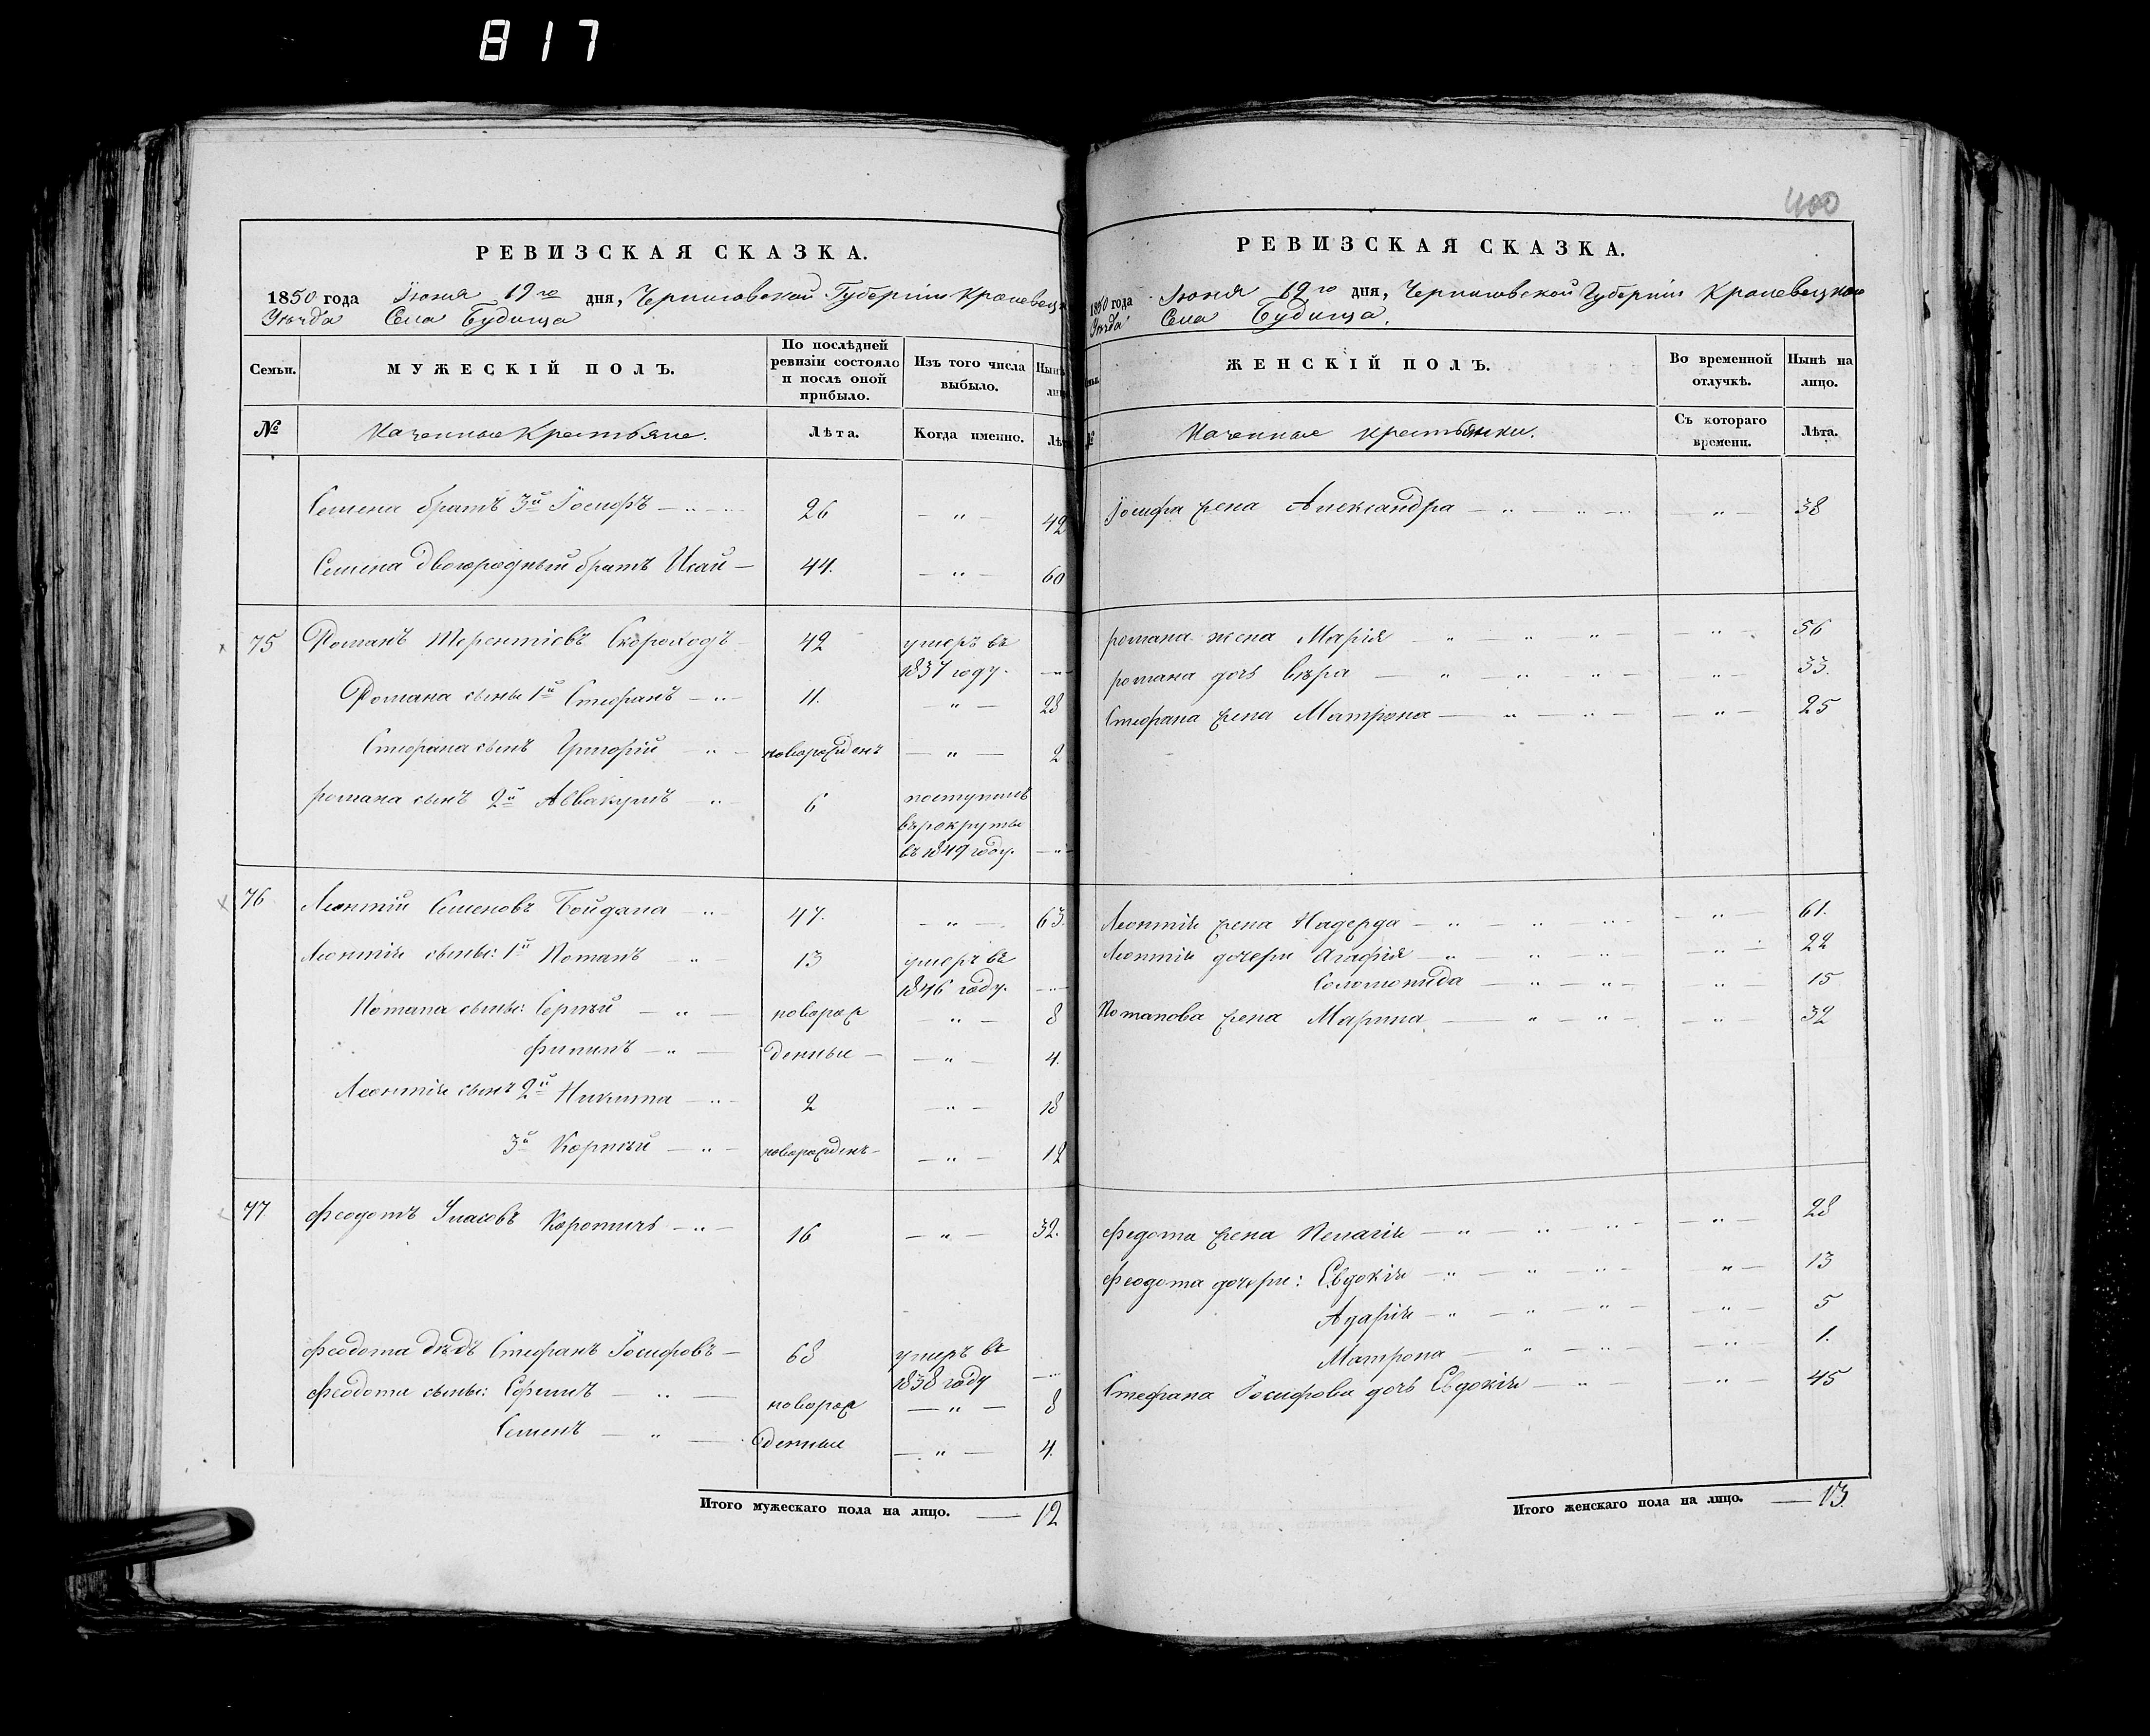 817
400
РЕВИЗСКАЯ СКАЗКА.
1850 года Іюня 19го дня, Черниговской Губерніи Кролевецк
Уѣзда Села Будища
Семьи. МУЖЕСКІЙ ПОЛЪ. По послѣдней ревизіи состояло и послѣ оной прибыло. Изъ того числа выбыло. Нынѣ
№ Казенные Крестьяне. Лѣта. Когда именно. Лѣт
Семена братъ 3й Іосифъ — 26 — " — 42
Семена двоюродный братъ Исай — 44. — " — 60
75 Романъ Терентіевъ Скороходъ 42 умеръ въ
1837 году. — " —
Романа сыны 1й Стефанъ — " — 11. — " — 28
Стефана сынъ Григорій — " — новорожденъ — " — 2
романа сынъ 2й Аввакумъ — " — 6 поступилъ
въ рокруты
въ 1849 году. — " —
76 Леонтій Семеновъ Бойдана — " — 47. — " — 63.
Леонтія сыны: 1й Потапъ — " — 13 умеръ въ
1846 году. — " —
Потапа сыны: Сергѣй — " — новорож — " — 8
Филипъ — " — денные — — " — 4.
Леонтія сынъ 2й Никита — " — 2 — " — 18
3й Корнѣй — " — новорожденъ — — " — 12
77 Феодотъ Власовъ — " — 16 — " — 32.
Феодота дѣдъ Стефанъ Іосифовъ — 68 умеръ въ
1838 году — " —
Феодота сыны: Ефимъ — " — новорож — " — 8
Семенъ — " — денные — " — 4.
Итого мужескаго пола на лицо. — 12
РЕВИЗСКАЯ СКАЗКА.
1850 года Іюня 19го дня, Черниговской Губерніи Кролевецкаго
Уѣзда Села Будища.
ЖЕНСКІЙ ПОЛЪ. Во временной отлучкѣ. Нынѣ на лицо.
№ Казенные крестьянки. Съ котораго времени. Лѣта.
Іосифа жена Александра — " — " — — " — 38
романа жена Марія " — " " — — " — 56
романа дочь вѣра — " — " " — — " — 33.
Стефана жена Матрона — " — " — — " — 25
Леонтія жена Надежда — " — " — " — — " — 61.
Леонтія дочери Агафія — " — " — " — " — 22
Соломонида — " — " — " — 15
Потапова жена Марина — " — " — — " — 32
Федота жена Пелагія — " — " — " — — " — 28
Феодота дочери: Евдокія — " — " — " — " — 13
Агафія — " — " — " — — " — 5
Матрона — " — " — — " — 1.
Стефана Іосифова дочь Евдокія — " — — " — 45
Итого женскаго пола на лицо. — 13.